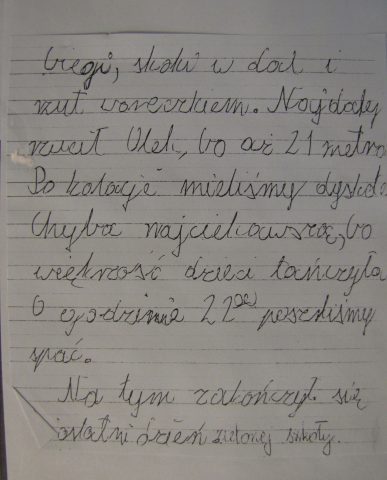 biegi, skoki w dal i
rzut woreczkiem. Najdalej
rzucił Olek, bo aż 21 metrów
Po kolacji mieliśmy dyskotekę
Chyba najciekawszą, bo
większość dzieci tańczyła
O godzinie 22⁰⁰ poszliśmy
spać.
Na tym zakończył się
ostatni dzień zielonej szkoły.